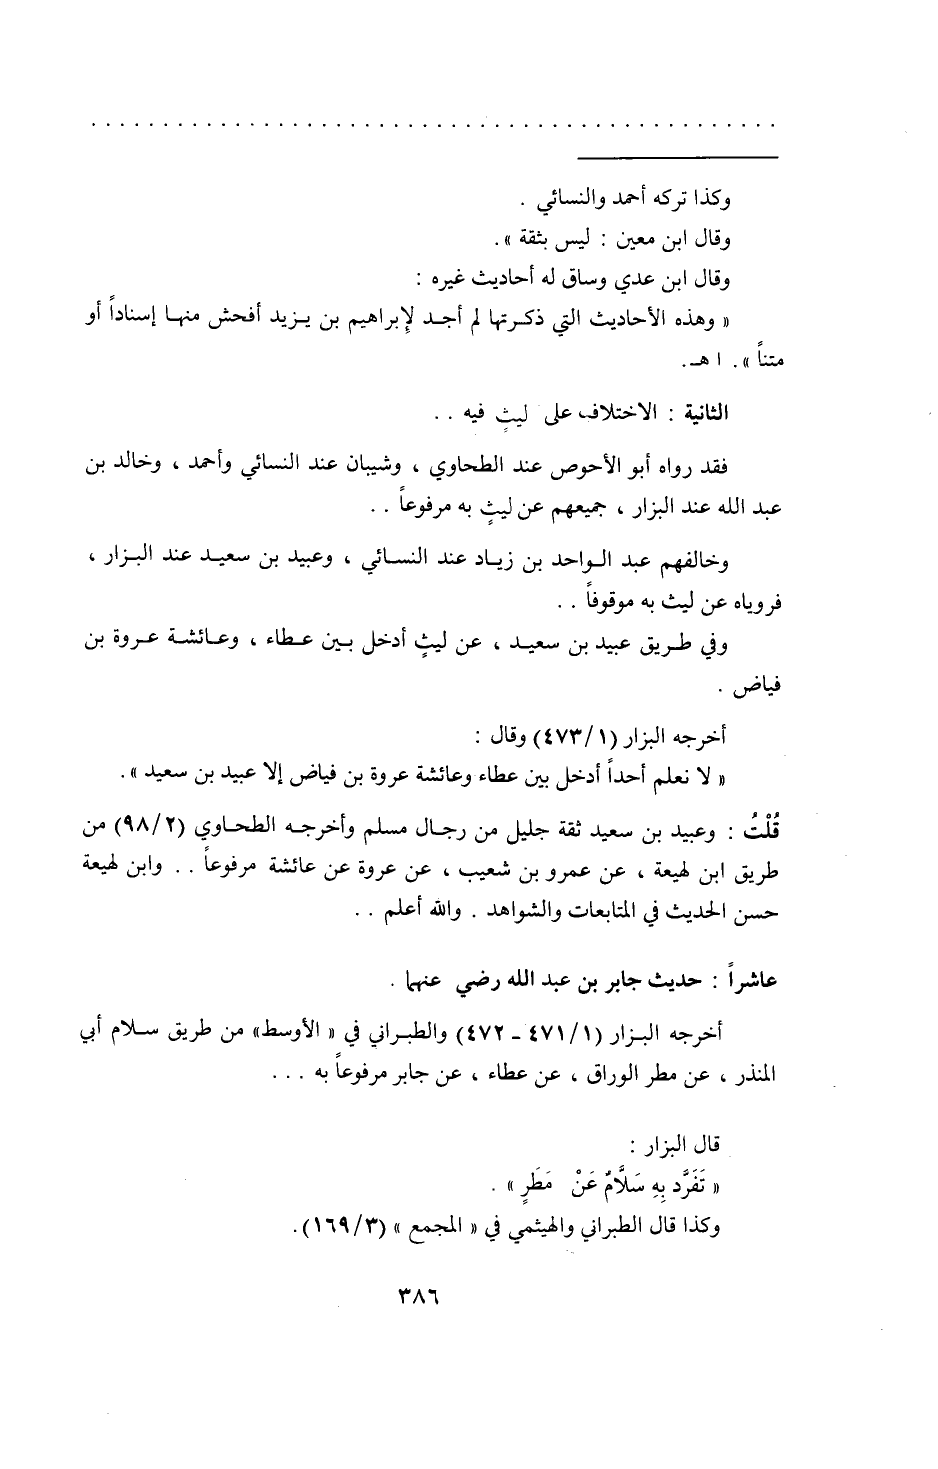 وكذا تركه أحمد والنسائي .
وقال ابن معين : ليس بثقة ».
وقال ابن عدي وساق له أحاديث غيره :
« وهذه الأحاديث التي ذكرتها لم أجد لإبراهيم بن يزيد أفحش منها إسناداً أو
متناً ». ا هـ.
الثانية : الاختلاف على ليثٍ فيه . .
فقد رواه أبو الأحوص عند الطحاوي ، وشيبان عند النسائي وأحمد ، وخالد بن
عبد الله عند البزار ، جميعهم عن ليثٍ به مرفوعاً . .
وخالفهم عبد الواحد بن زياد عند النسائي ، وعبيد بن سعيد عند البزار ،
فروياه عن ليث به موقوفاً . .
وفي طريق عبيد بن سعيد ، عن ليثٍ أدخل بين عطاء ، وعائشة عروة بن
فياض .
أخرجه البزار (٤٧٣/١) وقال :
« لا نعلم أحداً أدخل بين عطاء وعائشة عروة بن فياض إلا عبيد بن سعيد ».
قُلْتُ : وعبيد بن سعيد ثقة جليل من رجال مسلم وأخرجه الطحاوي (٩٨/٢) من
طريق ابن لهيعة ، عن عمرو بن شعيب ، عن عروة عن عائشة مرفوعاً . . وابن لهيعة
حسن الحديث في المتابعات والشواهد . والله أعلم . .
عاشراً : حديث جابر بن عبد الله رضي عنهما .
أخرجه البزار (٤٧١/١ ـ ٤٧٢) والطبراني في « الأوسط» من طريق سلام أبي
المنذر ، عن مطر الوراق ، عن عطاء ، عن جابر مرفوعاً به . . .
قال البزار :
« تَفَرَّد بِهِ سَلَّامٌ عَنْ مَطَرٍ » .
وكذا قال الطبراني والهيثمي في « المجمع » (١٦٩/٣).
٣٨٦